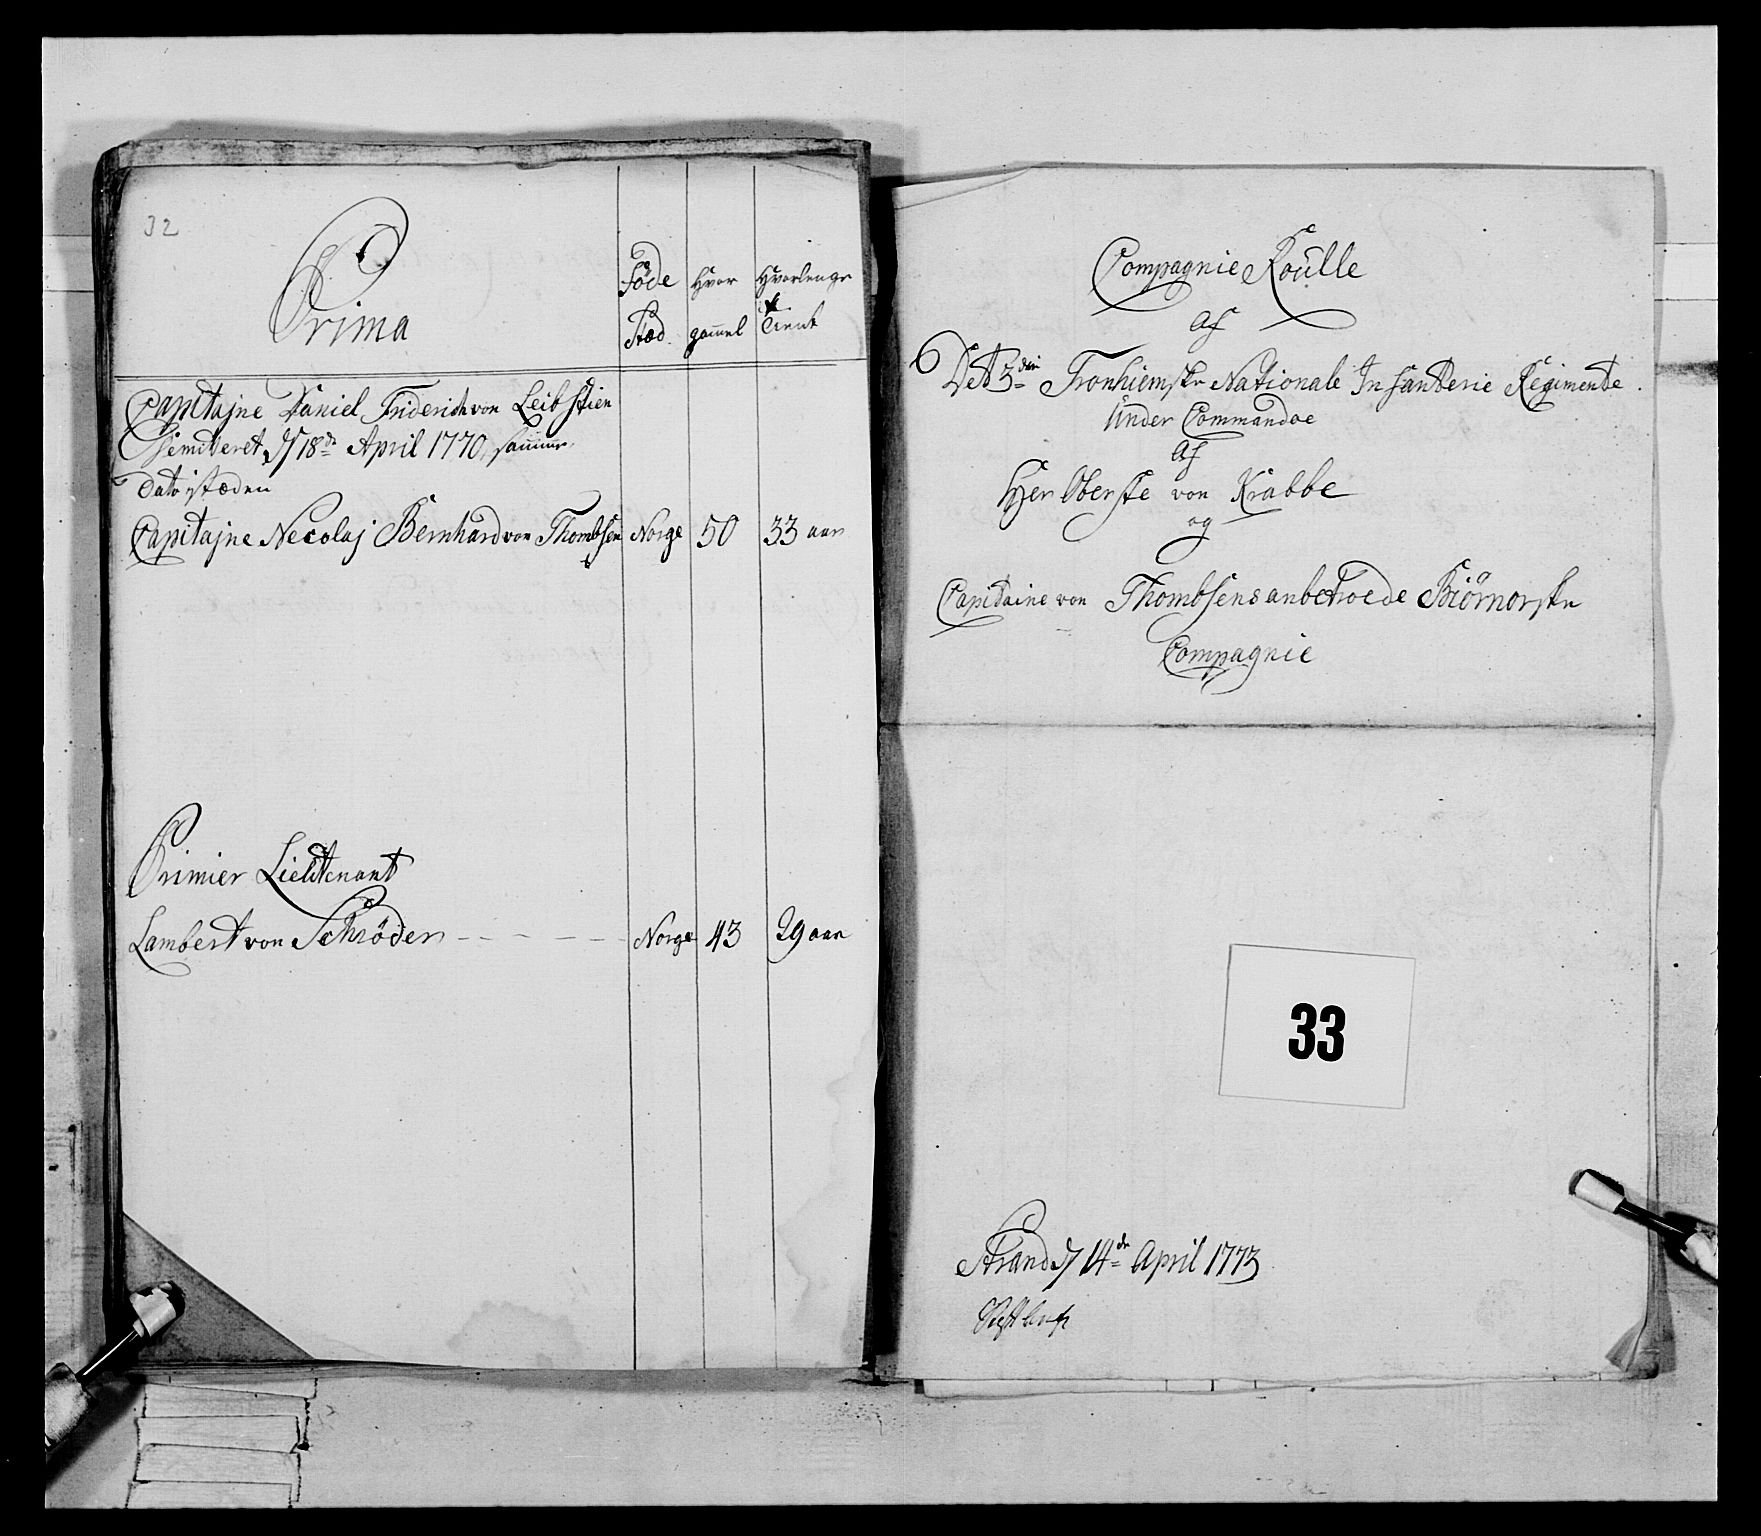 32
Prima
Føde
Stæd
Hvor
gammel
Hvorlenge
Tient
Capitajne Daniel Friderich von Leibstien
Demitteret d 18de April 1770, samme
Dato i stæden
Capitajne Necolaj Bernhard von Thombsen Norge 50 33 aar
Primier Lieutenant
Lambert von Schrøder - - - - - Norge 43 29 aar
Compagnie Roulle
Af
Det 3die Tronhiemske Nationale Infanterie Regimente.
Under Commandoe
Af
Her Oberste von Krabbe
og
Capitaine von Thombsens anbetroede Biørnorske
Compagnie
33
Strand d 14de April 1773